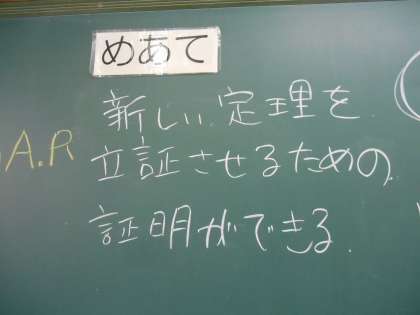 めあて
新しい定理を
A.R
立証させるための
証明ができる.